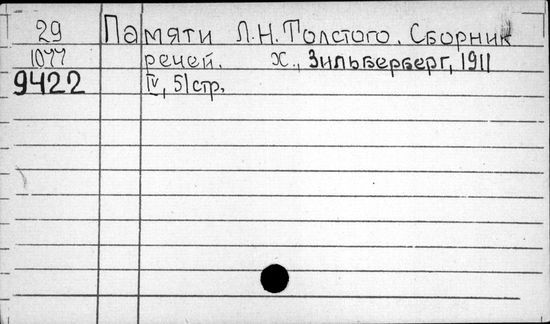 29 Памяти Л.Н.Толстого. Сборник
1077 речей. Х., Зильберберг, 1911
9422 IV, 51 стр.